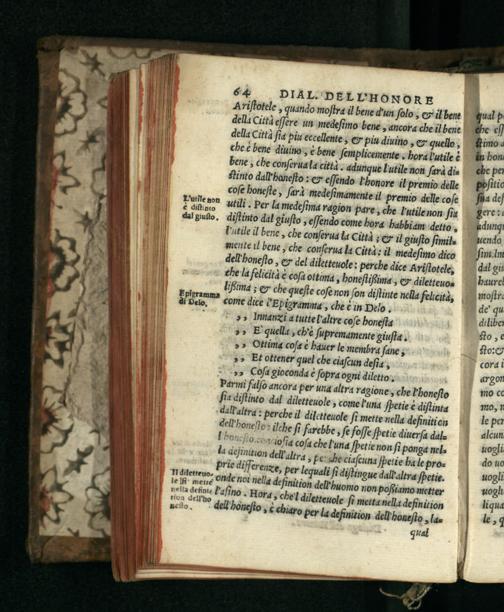 64 DIAL. DELL'HONORE
Aristotele, quando mostra il bene d'un solo, & il bene
della Città essere un medesimo bene, ancora che il bene
della Città sia piu eccellente, & piu diuino, & quello,
che è bene diuino, è bene semplicemente. hora l'utile è
bene, che conserua la città. adunque l'utile non sarà di-
stinto dall'honesto: & essendo l'honore il premio delle
cose honeste, sarà medesimamente il premio delle cose
utili. Per la medesima ragion pare, che l'utile non sia
L'utile non
è distinto
dal giusto.
distinto dal giusto, essendo come hora habbiam detto,
l'utile il bene, che conserua la Città; & il giusto simil-
mente il bene, che conserua la Città: il medesimo dico
dell'honesto, & del diletteuole: perche dice Aristotele,
che la felicità è cosa ottima, honestissima, & diletteuo-
lissima; & che queste cose non son distinte nella felicità,
Epigramma
di Delo.
come dice l'Epigramma, che è in Delo.
,, Innanzi a tutte l'altre cose honesta
,, E' quella, ch'è supremamente giusta.
,, Ottima cosa è hauer le membra sane,
,, Et ottener quel che ciascun desia,
,, Cosa gioconda è sopra ogni diletto.
Parmi falso ancora per una altra ragione, che l'honesto
sia distinto dal diletteuole, come l'una spetie è distinta
dall'altra: perche il diletteuole si mette nella definition
dell'honesto: ilche si farebbe, se fosse spetie diuersa dal-
l'honesto. conciosia cosa che l'una spetie non si ponga nel-
la definition dell'altra, perche ciascuna spetie ha le pro-
prie differenze, per lequali si distingue dall'altra spetie.
Il diletteuo-
le si mette
nella defini-
tion dell'ho
nesto.
onde noi nella definition dell'huomo non possiamo metter
l'asino. Hora, che'l diletteuole si metta nella definition
dell'honesto, è chiaro per la definition dell'honesto, la-
qual